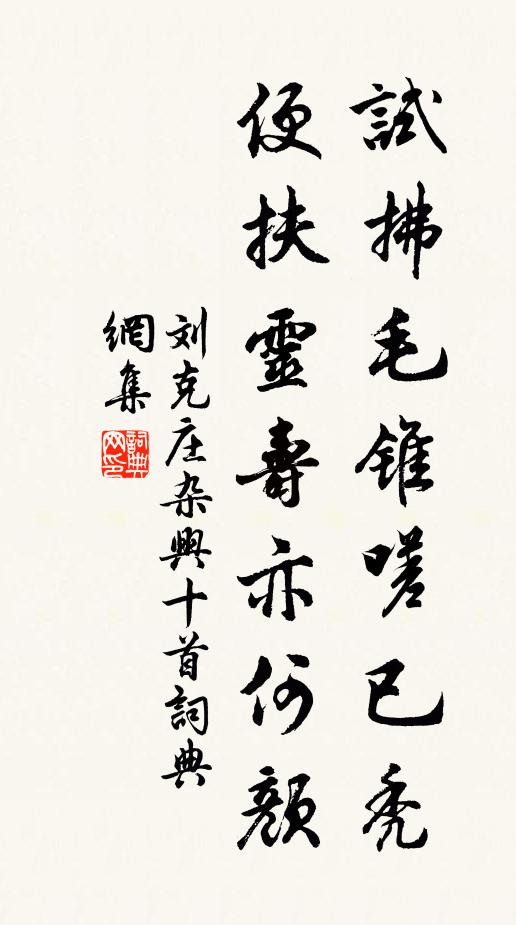 試拂毛錐嗟已禿
便扶靈壽亦何顏
刘克庄杂興十首詞典
網集
詞典网印